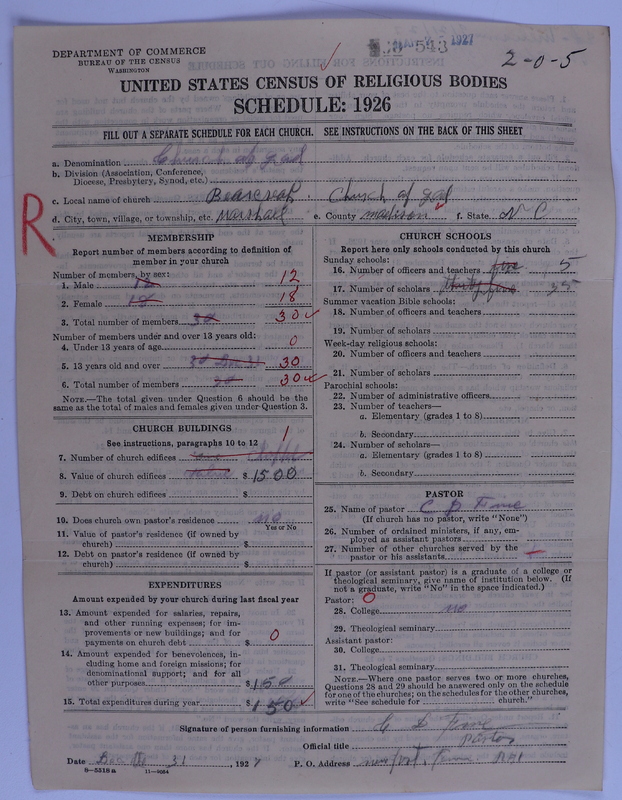 DEPARTMENT OF COMMERCE
BUREAU OF THE CENSUS
WASHINGTON
543 1927
2-0-5
UNITED STATES CENSUS OF RELIGIOUS BODIES
SCHEDULE: 1926
FILL OUT A SEPARATE SCHEDULE FOR EACH CHURCH. SEE INSTRUCTIONS ON THE BACK OF THIS SHEET
a. Denomination Church of god
b. Division (Association, Conference, Diocese, Presbytery, Synod, etc.)
c. Local name of church Bearcreah Church of god
d. City, town, village, or township, etc. Marshall e. County madison f. State N C
R
MEMBERSHIP
Report number of members according to definition of member in your church
Number of members, by sex:
1. Male 12
2. Female 18
3. Total number of members 30
Number of members under and over 13 years old:
4. Under 13 years of age 0
5. 13 years old and over 30
6. Total number of members 30
NOTE.—The total given under Question 6 should be the same as the total of males and females given under Question 3.
CHURCH BUILDINGS
See instructions, paragraphs 10 to 12
7. Number of church edifices one 1
8. Value of church edifices $ 1500
9. Debt on church edifices $
10. Does church own pastor's residence no
Yes or No
11. Value of pastor's residence (if owned by church) $
12. Debt on pastor's residence (if owned by church) $
EXPENDITURES
Amount expended by your church during last fiscal year
13. Amount expended for salaries, repairs, and other running expenses; for improvements or new buildings; and for payments on church debt $ 0
14. Amount expended for benevolences, including home and foreign missions; for denominational support; and for all other purposes $ 150
15. Total expenditures during year $ 150
CHURCH SCHOOLS
Report here only schools conducted by this church
Sunday schools:
16. Number of officers and teachers five 5
17. Number of scholars thirty five 35
Summer vacation Bible schools:
18. Number of officers and teachers
19. Number of scholars
Week-day religious schools:
20. Number of officers and teachers
21. Number of scholars
Parochial schools:
22. Number of administrative officers
23. Number of teachers—
a. Elementary (grades 1 to 8)
b. Secondary
24. Number of scholars—
a. Elementary (grades 1 to 8)
b. Secondary
PASTOR
25. Name of pastor
(If church has no pastor, write "None")
26. Number of ordained ministers, if any, employed as assistant pastors
27. Number of other churches served by the pastor or his assistants
If pastor (or assistant pastor) is a graduate of a college or theological seminary, give name of institution below. (If not a graduate, write "No" in the space indicated.)
Pastor: 0
28. College no
29. Theological seminary
Assistant pastor:
30. College
31. Theological seminary
NOTE.—Where one pastor serves two or more churches, Questions 28 and 29 should be answered only on the schedule for one of the churches; on the schedules for the other churches, write "See schedule for church."
Signature of person furnishing information
Official title Pastor
Date 31, 1927 P. O. Address newport, Tenn
8-5318a 11-9064